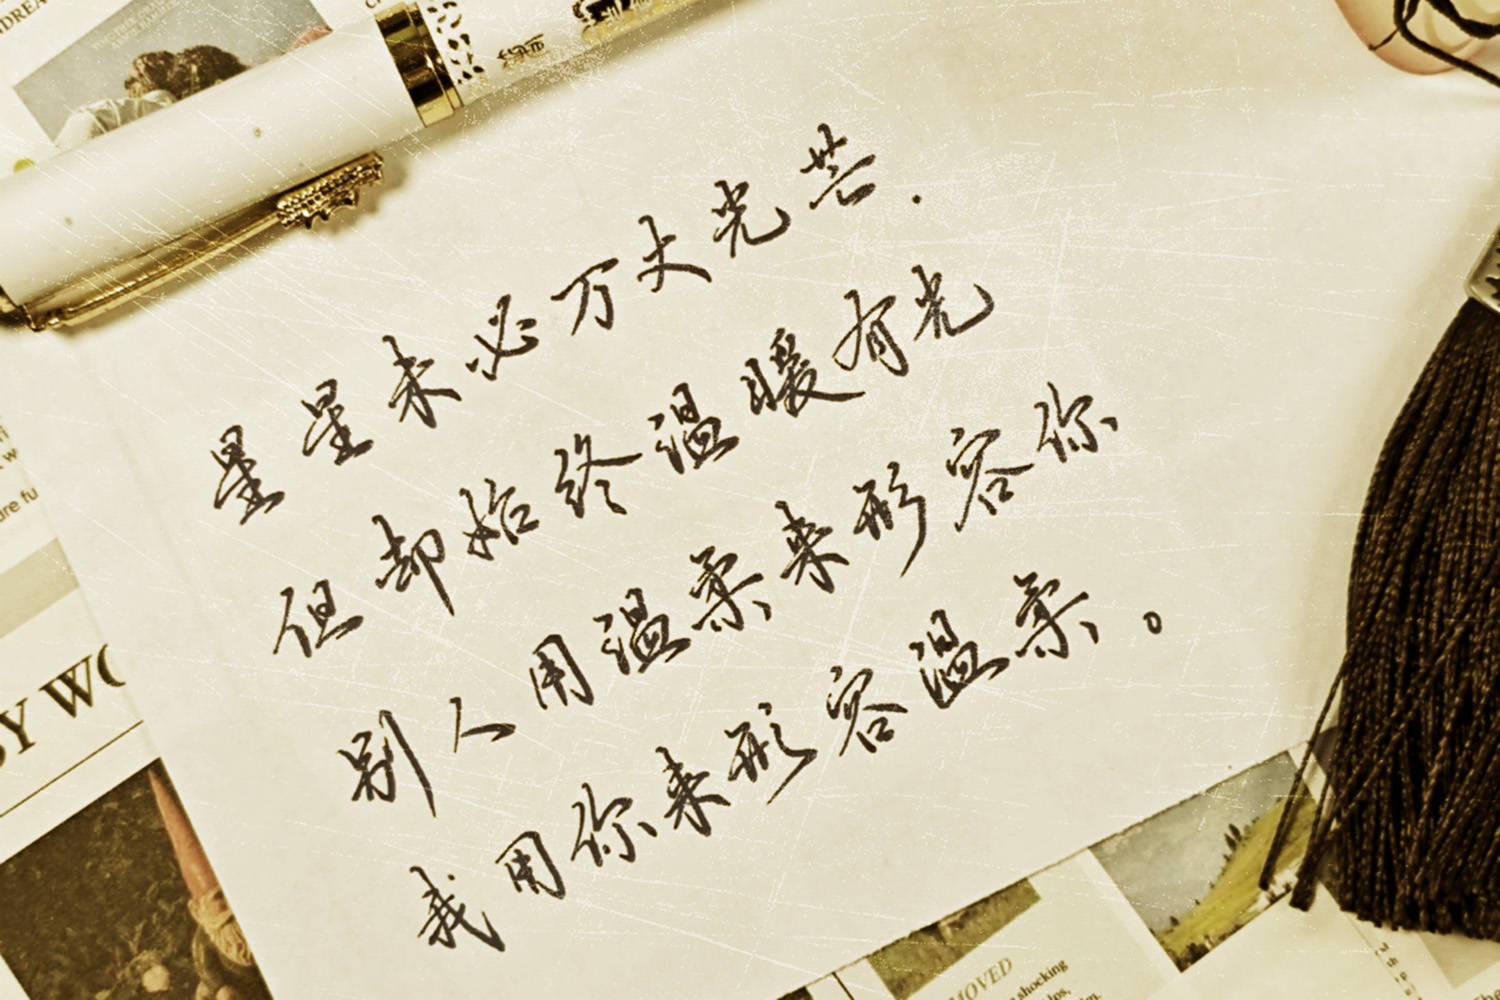 星星未必万丈光芒.
但却始终温暖有光
别人用温柔来形容你
我用你来形容温柔。
BY WO
are fu
MOVED
shocking